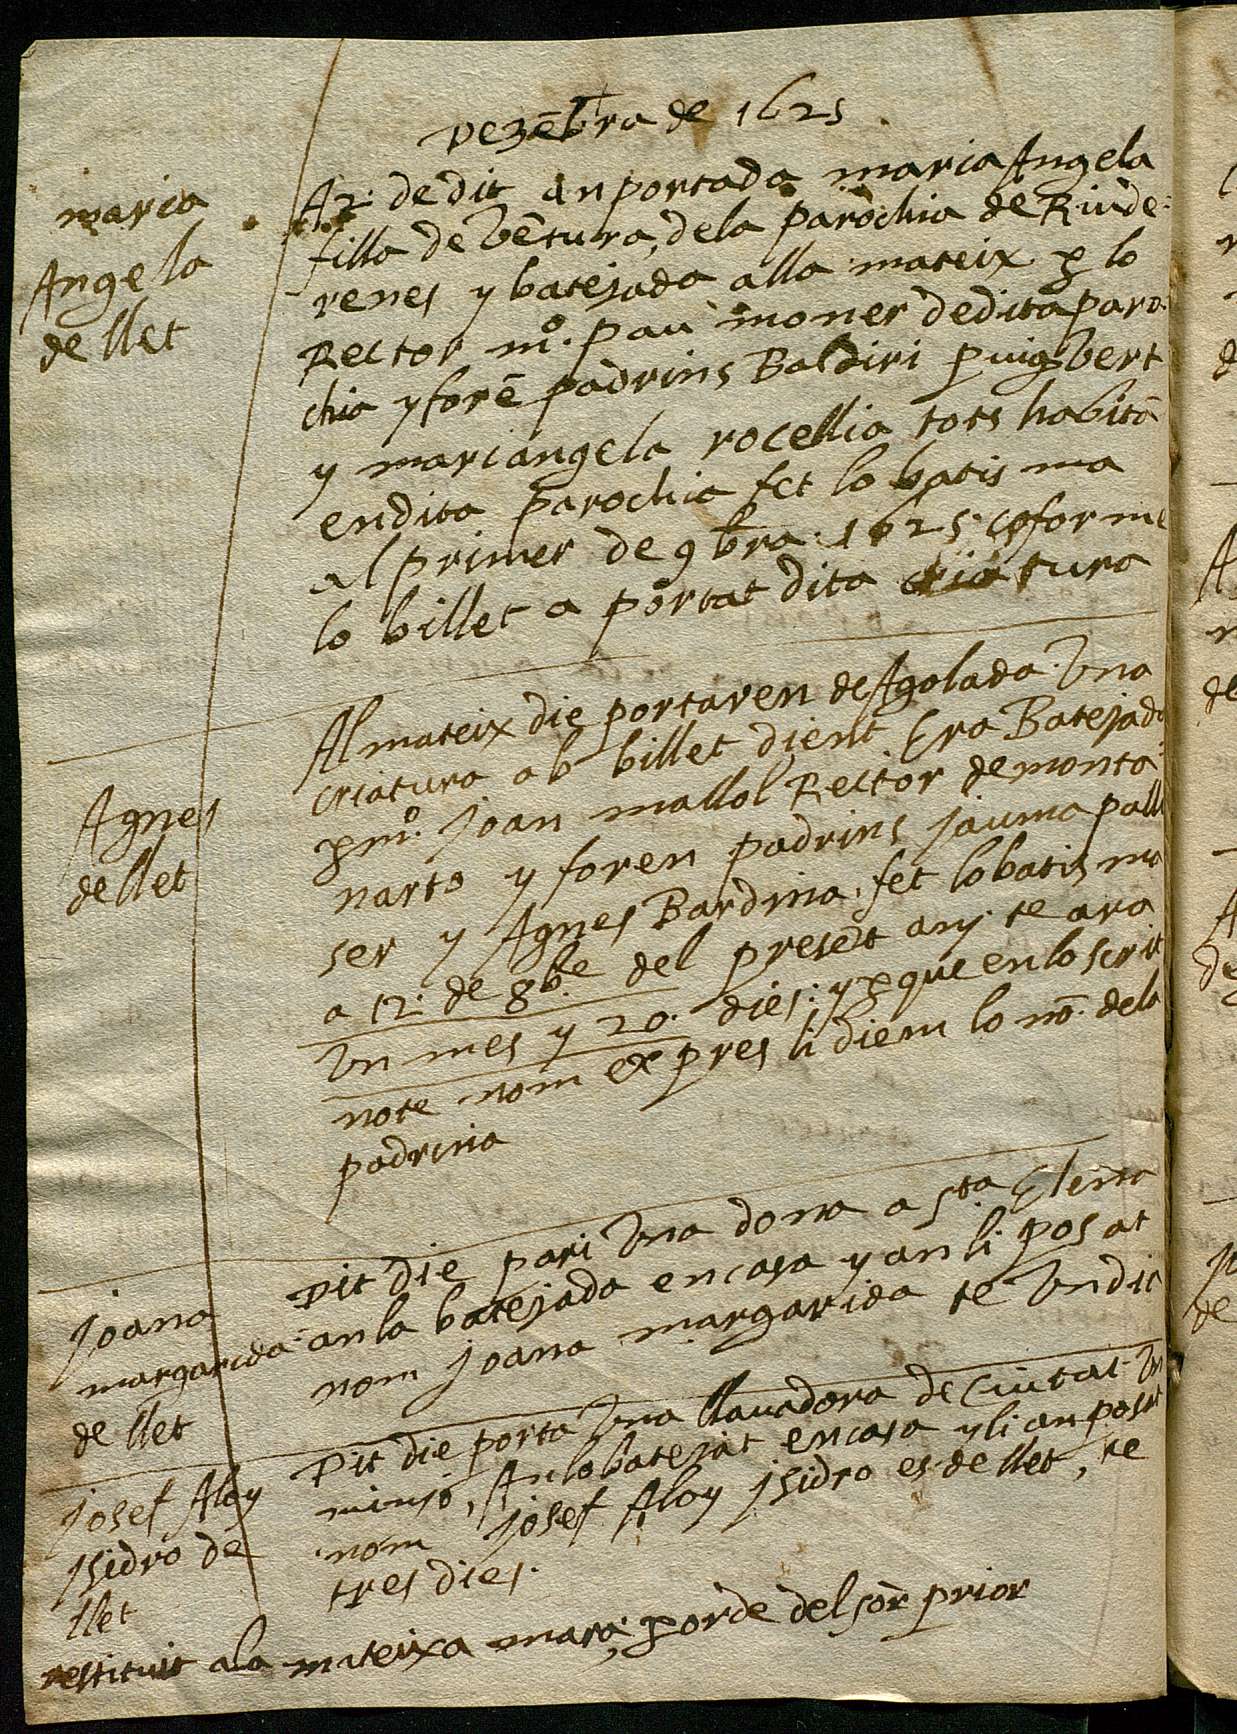 Dezēbra de 1625
maria
Angela
de llet
A 2. de dit an portada maria Angela
filla de Vētura, dela parochia de Riude-
renes y batejada alla mateix p lo
Rector mº. pau moner de dita paro
chia y forē padrins Baldiri puigvert
y mariangela rocellia tots habitā
en dita parochia fet lo batis ma
al primer de 9bra. 1625. cōforme
lo billet a portat dita criatura
Agnes
de llet
Al mateix die portaren de Agolada Una
criatura ab billet dient Era Batejada
p mº. joan mallol Rector de monta-
narto y foren padrins jauma palli
ser y Agnes Bardina. fet lo batis ma
a 12. de 8b.e del presēt any. te ara
Un mes y 20. dies. y p que en lo scrit
note nom expres li diem lo nō. dela
padrina
joana
margarida
de llet
Dit die pari Una dona a Sta. Elena
an la batejada en casa y an li posat
nom joana margarida te Un dia
josef Aloy
jsidro de
llet
Dit die porta Una llauadora de Ciutat Un
minjo, An lo batejat en casa y li an posat
nom josef Aloy jsidro es de llet, te
tres dies.
restituit a la mateixa mara, p orde del sōr prior